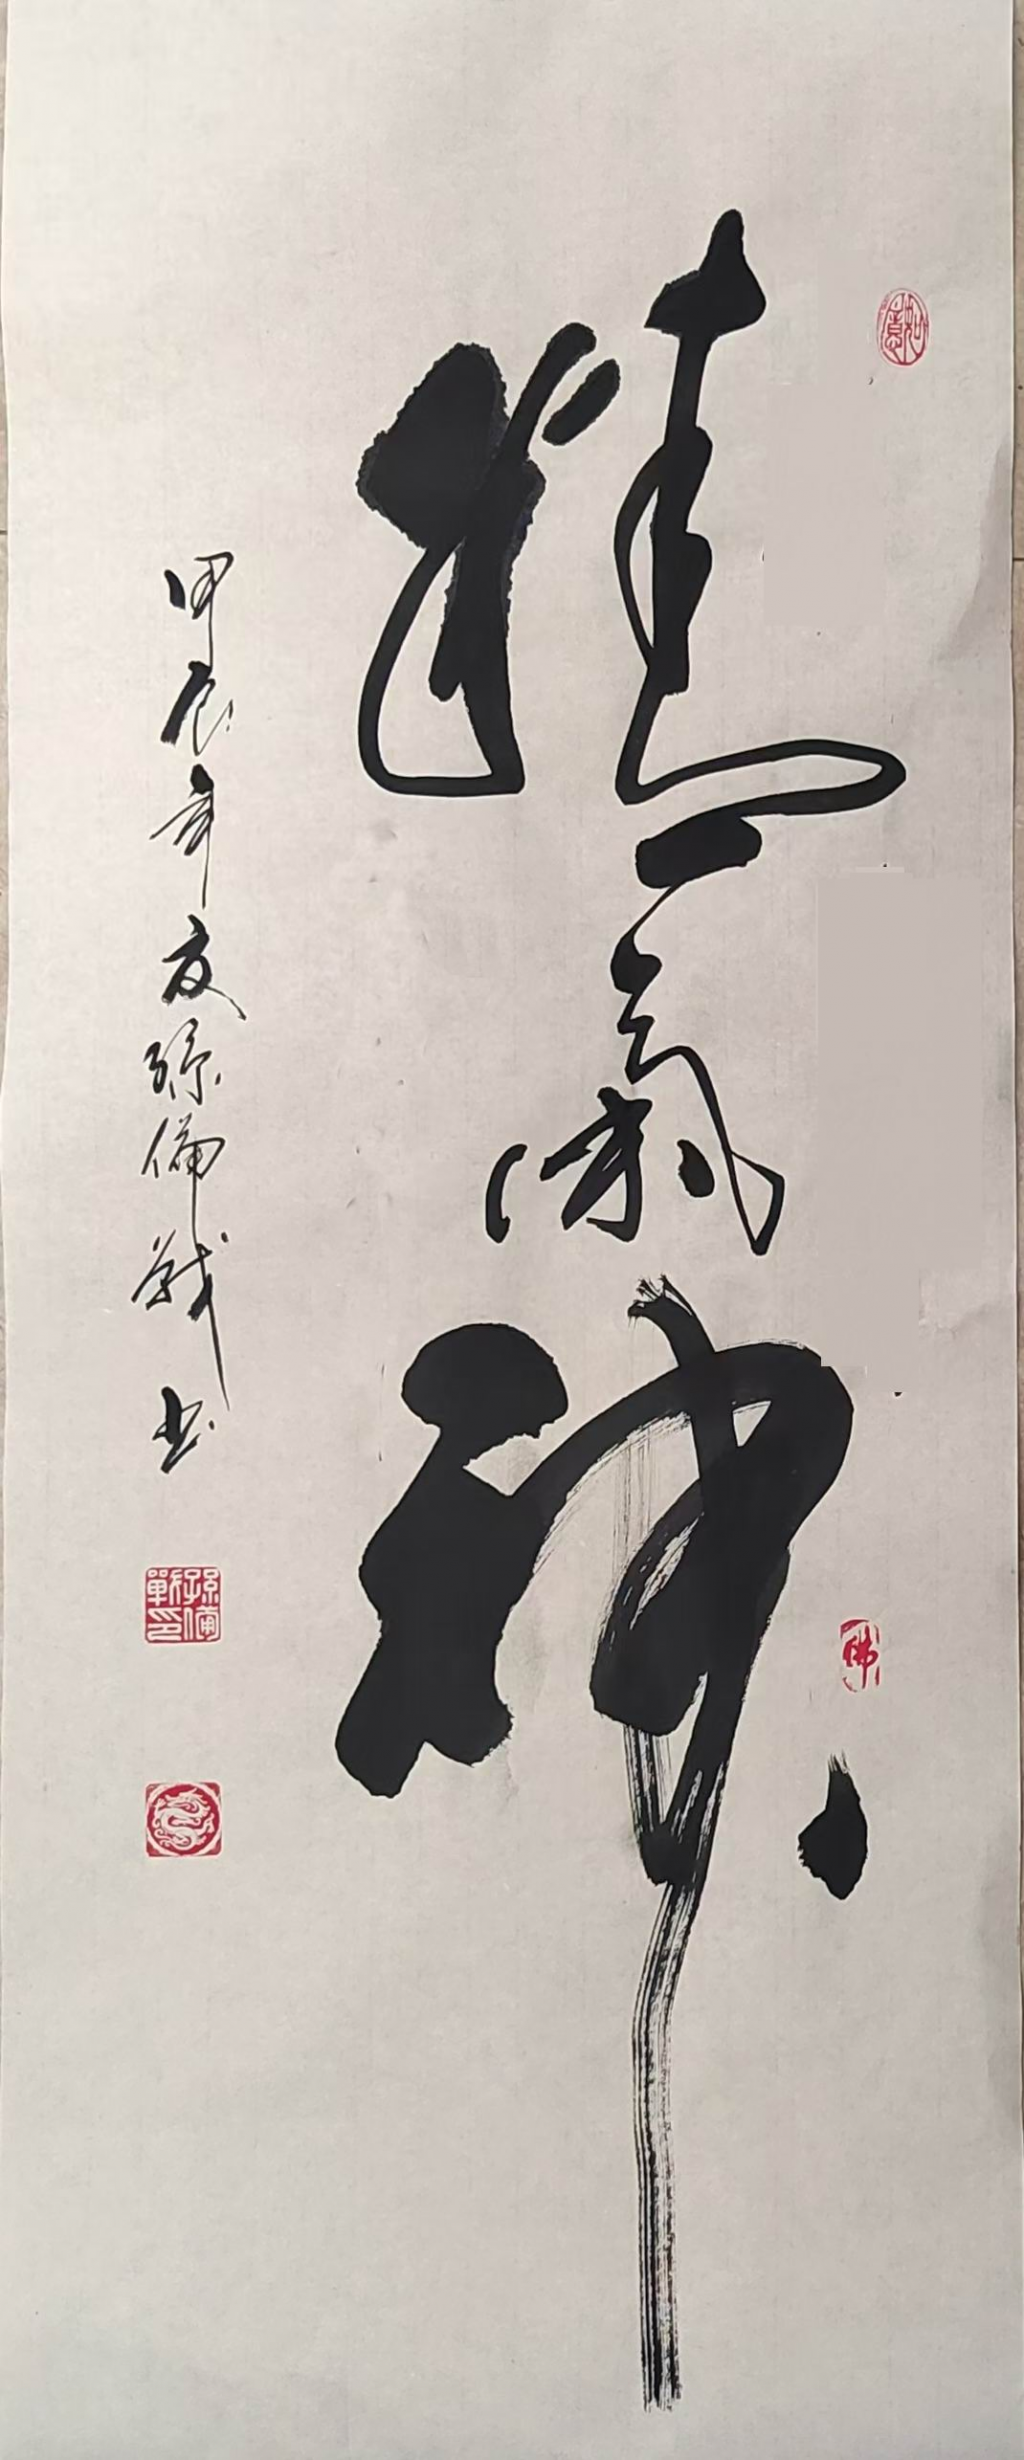 精氣神
如意
佛
甲辰年夏孫備戰書
孫備戰印